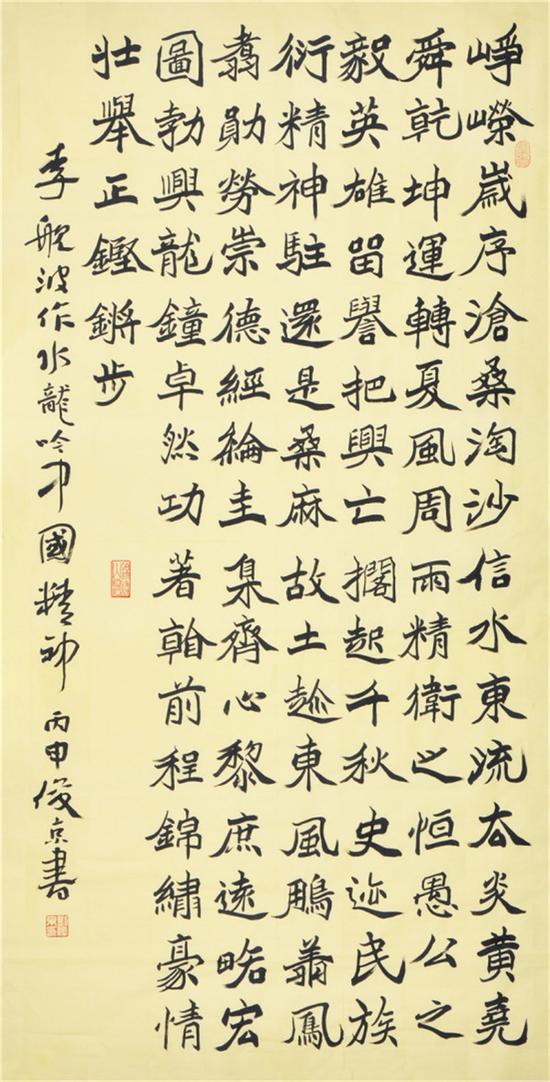 崢嶸歲序滄桑淘沙信水東流去炎黃堯
舜乾坤運轉夏風周雨精衛之恒愚公之
毅英雄留譽把興亡擱起千秋史迹民族
衍精神駐還是桑麻故土趁東風鵬翔鳳
翥勛勞崇德經綸圭臬齊心黎庶遠略宏
圖勃興龍鐘卓然功著翰前程錦繡豪情
壯舉正鏗鏘步
李波作水龍吟中國精神 丙申俊京書